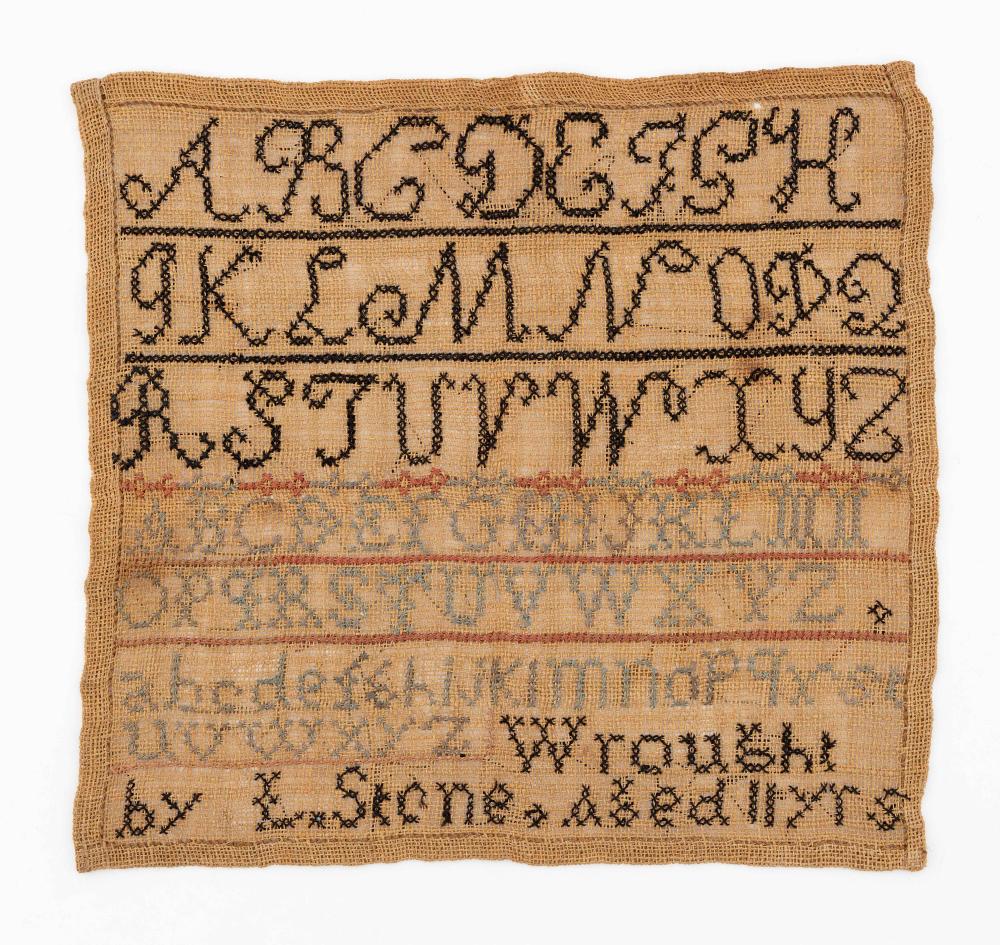 A B C D E F G H
I K L M N O P Q
R S T U V W X Y Z
A B C D E F G H I J K L M N
O P Q R S T U V W X Y Z
a b c d e f g h i j k l m n o p q r s t
u v w x y z Wrought
by L. Stone, Aged 11 yrs